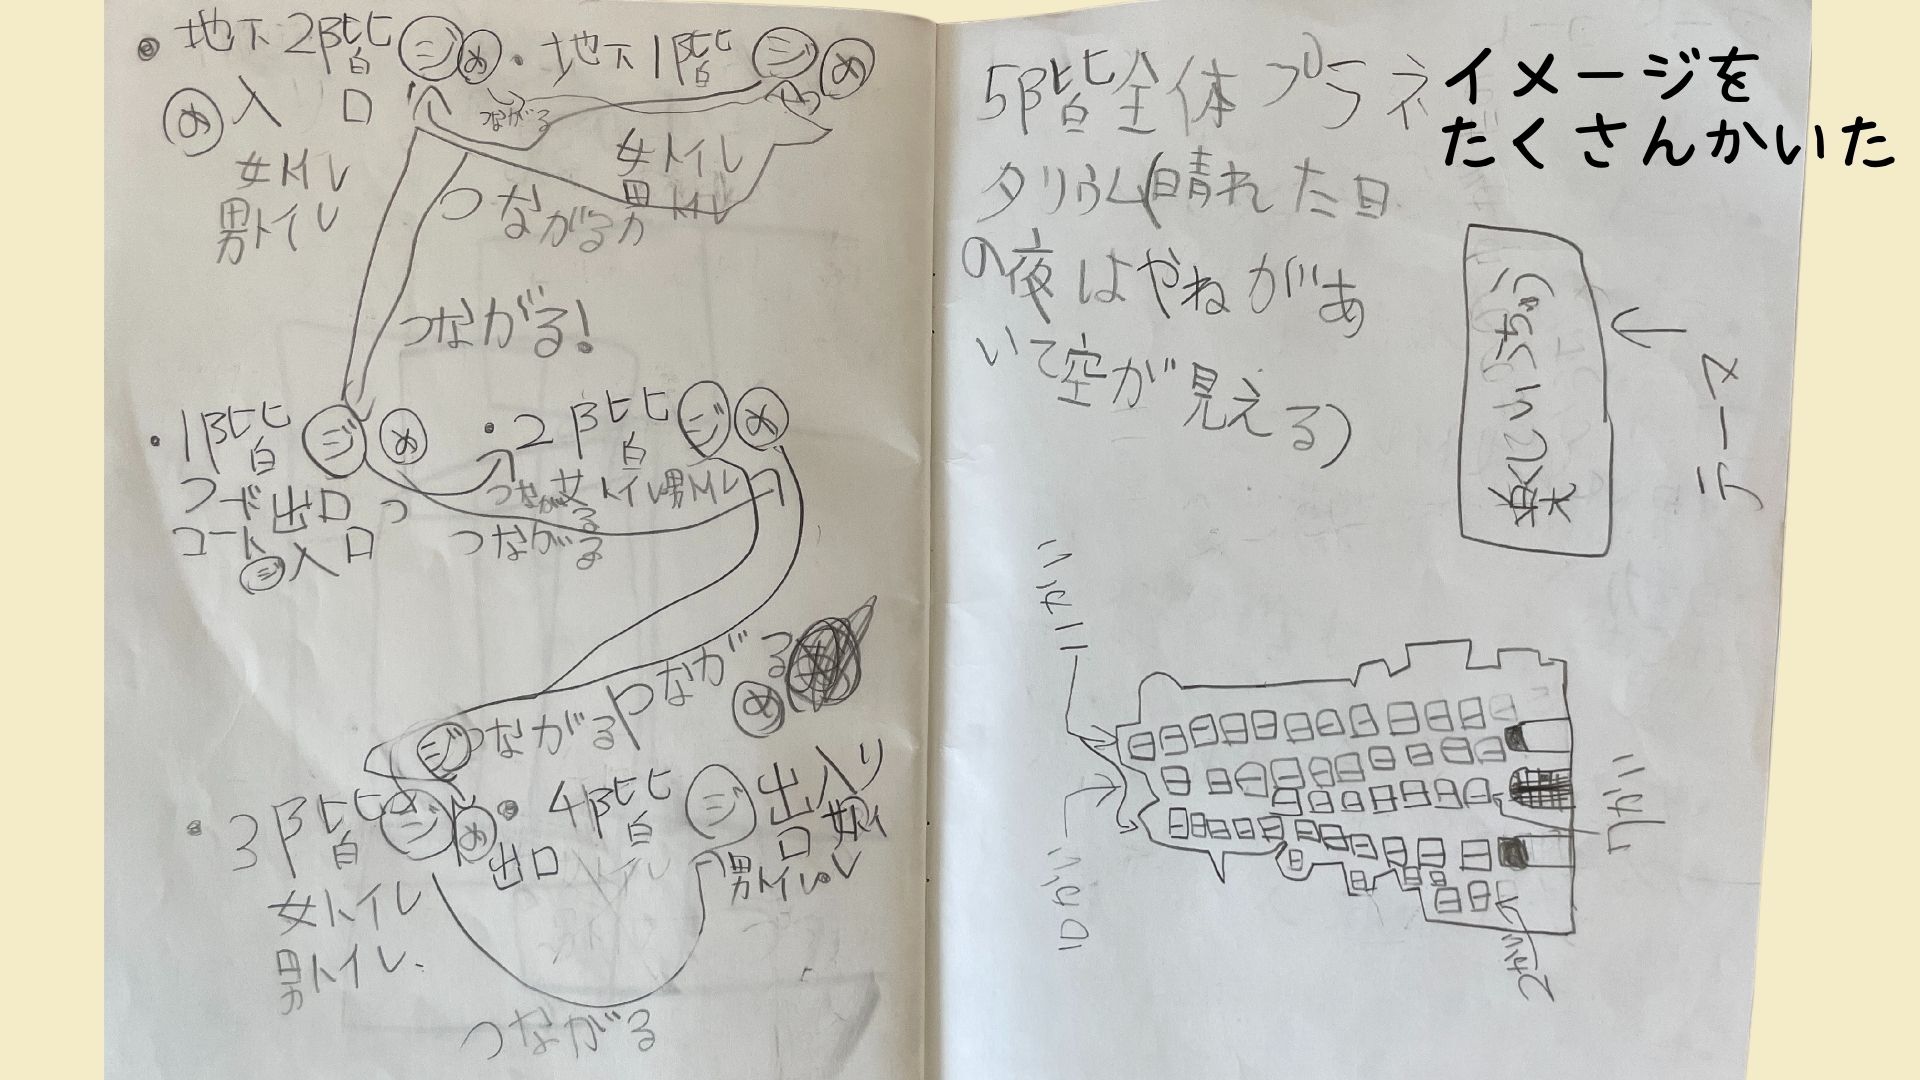 イメージを
たくさんかいた
・地下2階 ジ め
め 入口
女トイレ
男トイレ
・地下1階 ジ め
女トイレ
男トイレ
つながる
つながる
つながる!
・1階 ジ め
フード出口
コート ジ入口
・2階 ジ め
女トイレ男トイレ
つながる
つながる
つながる
め
ジ
つながる
・3階 ジ め
出口
女トイレ
男トイレ
・4階 ジ 出入り
口
男トイレ
つながる
5階全体プラネ
タリウム(晴れた日
の夜はやねがあ
いて空が見える)
楽しい
テーマ
11かい
10かい
7かい
2かい